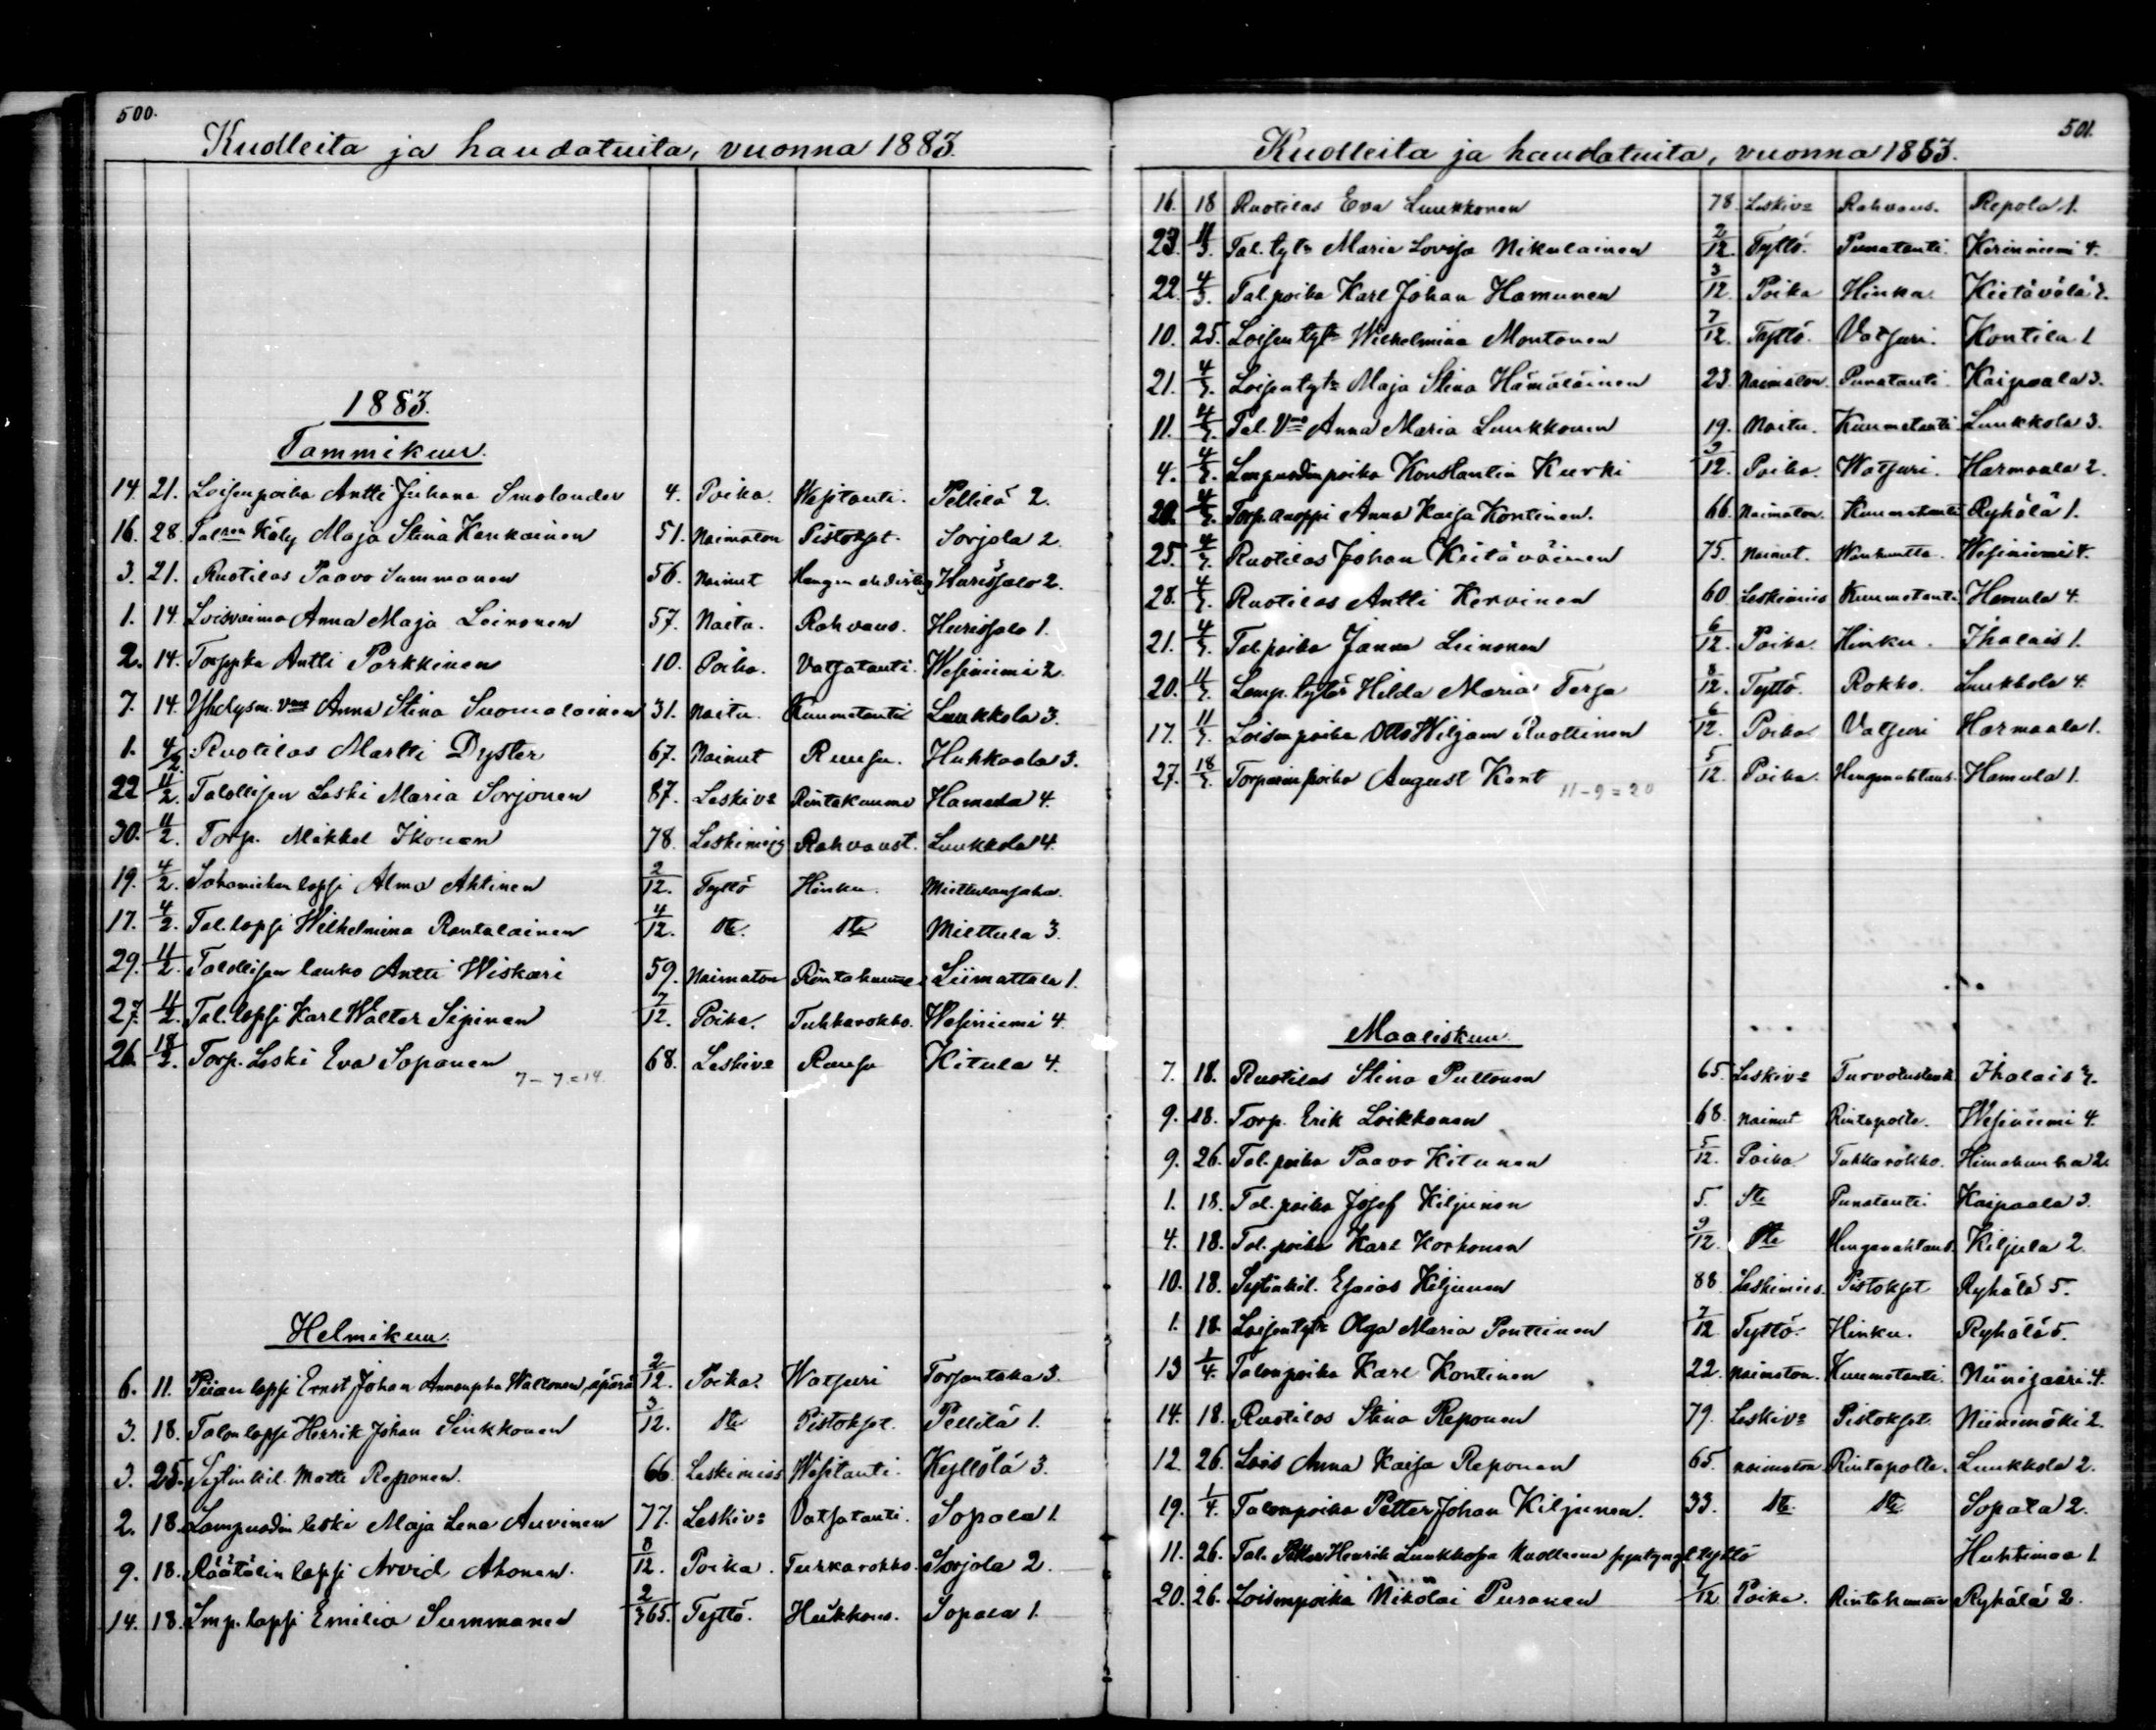 500.
Kuolleita ja haudatuita, vuonna 1883.
1883.
Tammikuu.
14. 21. Loisenpoika Antti Juhana Smolander 4. Poika. Wesitauti. Pellilä 2.
16. 28. Talosen Käly Maja Stina Kankainen 51. Naimaton Pistokset. Sorjola 2.
3. 21. Ruotilas Paavo Summanen 56. Naimut Hurissalo 2.
1. 14. Loisvaimo Anna Maja Leinonen 57. Naitu. Rahvaus. Hurissalo 1.
2. 14. Torppka Antti Parkkinen 10. Poika. Vatsatauti. Wesiniemi 2.
7. 14. Anna Stina Suomalainen 31. Naitu. Kuumetauti Luukkola 3.
1. 4/2. Ruotilas Martti Dyster 67. Naimut Ruusu. Hukkaala 3.
22 11/2. Talollisen Leski Maria Sorjonen 87. Leskiv= Rintakuume Hamula 4.
30. 11/2. Torp. Mikkel Ikonen 78. Leskimies Rahvaust. Luukkola 4.
19. 4/2. lapsi Alma Ahtinen 2/12. Tyttö Hinku.
17. 4/2. Tal. lapsi Wilhelmina Rantalainen 4/12. Ste. Ste Miettula 3.
29. 11/2. Talollisen lanko Antti Wiskari 59. Naimaton Rintakuume Liimattala 1.
27. 11/2. Tal. lapsi Karl Walter Sipinen 7/12. Poika. Tuhkarokko. Wesiniemi 4.
26. 18/2. Torp. Leski Eva Soponen 68. Leskiv= Ruusu Kitula 4.
7 - 7 = 14.
Helmikuu.
6. 11. Piian lapsi Ernst Johan Annanpka Waltonen, äpärä 2/12. Poika. Watsuri Torsantaka 3.
3. 18. Talon lapsi Henrik Johan Sinkkonen 3/12. Ste Pistokset. Pellilä 1.
3. 25. Sytinkil. Matti Reponen. 66. Leskimies Wesitauti. Kyllölä 3.
2. 18. Lampuodin leski Maja Lena Auvinen 77. Leskiv= Vatsatauti. Sopala 1.
9. 18. Räätälin lapsi Arvid Ahonen. 8/12. Poika. Tuhkarokko. Sorjola 2.
14. 18. Lmp. lapsi Emilia Summanen 2/365. Tyttö. Heikkous. Sopala 1.
501.
Kuolleita ja haudatuita, vuonna 1883.
16. 18 Ruotilas Eva Luukkonen 78. Leskiv= Rahvaus. Repola 1.
23. 11/3. Tal. tyt= Maria Lovisa Nikulainen 2/12. Tyttö. Punatauti. Kerinniemi 4.
22. 4/3. Tal. poika Karl Johan Hamunen 3/12. Poika Hinku. Kietävälä 2.
10. 25. Loisen tyt= Wilhelmina Montonen 7/12. Tyttö. Vatsuri. Kontila 1
21. 4/3. Loisen tyt= Maja Stina Hämäläinen 23. Naimaton. Punatauti. Kaipaala 3.
11. 4/3. Tal. Vmo Anna Maria Luukkonen 19. Naitu. Kuumetauti Luukkola 3.
4. 4/3. Lmpuodin poika Konstantin Kurki 3/12. Poika. Watsuri. Harmaala 2.
20. 4/3. Torp. anoppi Anna Kaisa Kontinen. 66. Naimaton. Kuumetauti Ryhälä 1.
25. 4/3. Ruotilas Johan Kietäväinen 75. Naimut. Wanhuutta. Wesiniemi 4.
28. 4/3. Ruotilas Antti Kervinen 60. Leskimies Kuumetauti Hamula 4.
21. 4/3. Tal. poika Janne Leinonen 6/12. Poika. Hinku. Ihalais 1.
20. 11/3. Lamp. tytär Hilda Maria Tersa 8/12. Tyttö. Rokko. Luukkola 4.
17. 11/3. Loisen poika Otto Wiljam Ruottinen 6/12. Poika Vatsuri Harmaala 1.
27. 18/3. Torparin poika August Kant 5/12. Poika. Hengenahtaus. Hamula 1.
11 - 9 = 20
Maaliskuu.
7. 18. Ruotilas Stina Pullonen 65. Leskiv= Turvotustauti. Ihalais 2.
9. 18. Torp. Erik Loikkanen 68. Naimut Rintapolte. Wesiniemi 4.
9. 26. Tal. poika Paavo Kitunen 5/12. Poika Tuhkarokko. Himahunha 2.
1. 18. Tal. poika Josef Kiljunen 5. Ste Punatauti. Kaipaala 3.
4. 18. Tal. poika Karl Korhonen 9/12. Ste Hengenahtaus. Kiljula 2.
10. 18. Sytinkil. Esaias Kiljunen 88. Leskimies. Pistokset Ryhälä 5.
1. 18. Loisen tyt= Olga Maria Penttinen 7/12 Tyttö. Hinku. Ryhälä 5.
13 1/4. Talonpoika Karl Kontinen 22. Naimaton. Kuumetauti. Niinisaari 4.
14. 18. Ruotilas Stina Reponen 79. Leskiv= Pistokset. Niinimäki 2.
12. 26. Lois Anna Kaisa Reponen 65. Naimaton. Rintapolte. Luukkola 2.
19. 1/4. Talonpoika Petter Johan Kiljunen. 33. Ste. Ste Sopala 2.
11. 26. Tal. Petter Henrik Luukkosen kuolleena syntynyt tyttö Huhtimaa 1
20. 26. Loisenpoika Nikolai Puranen 7/12 Poika. Rintakuume Ryhälä 2.